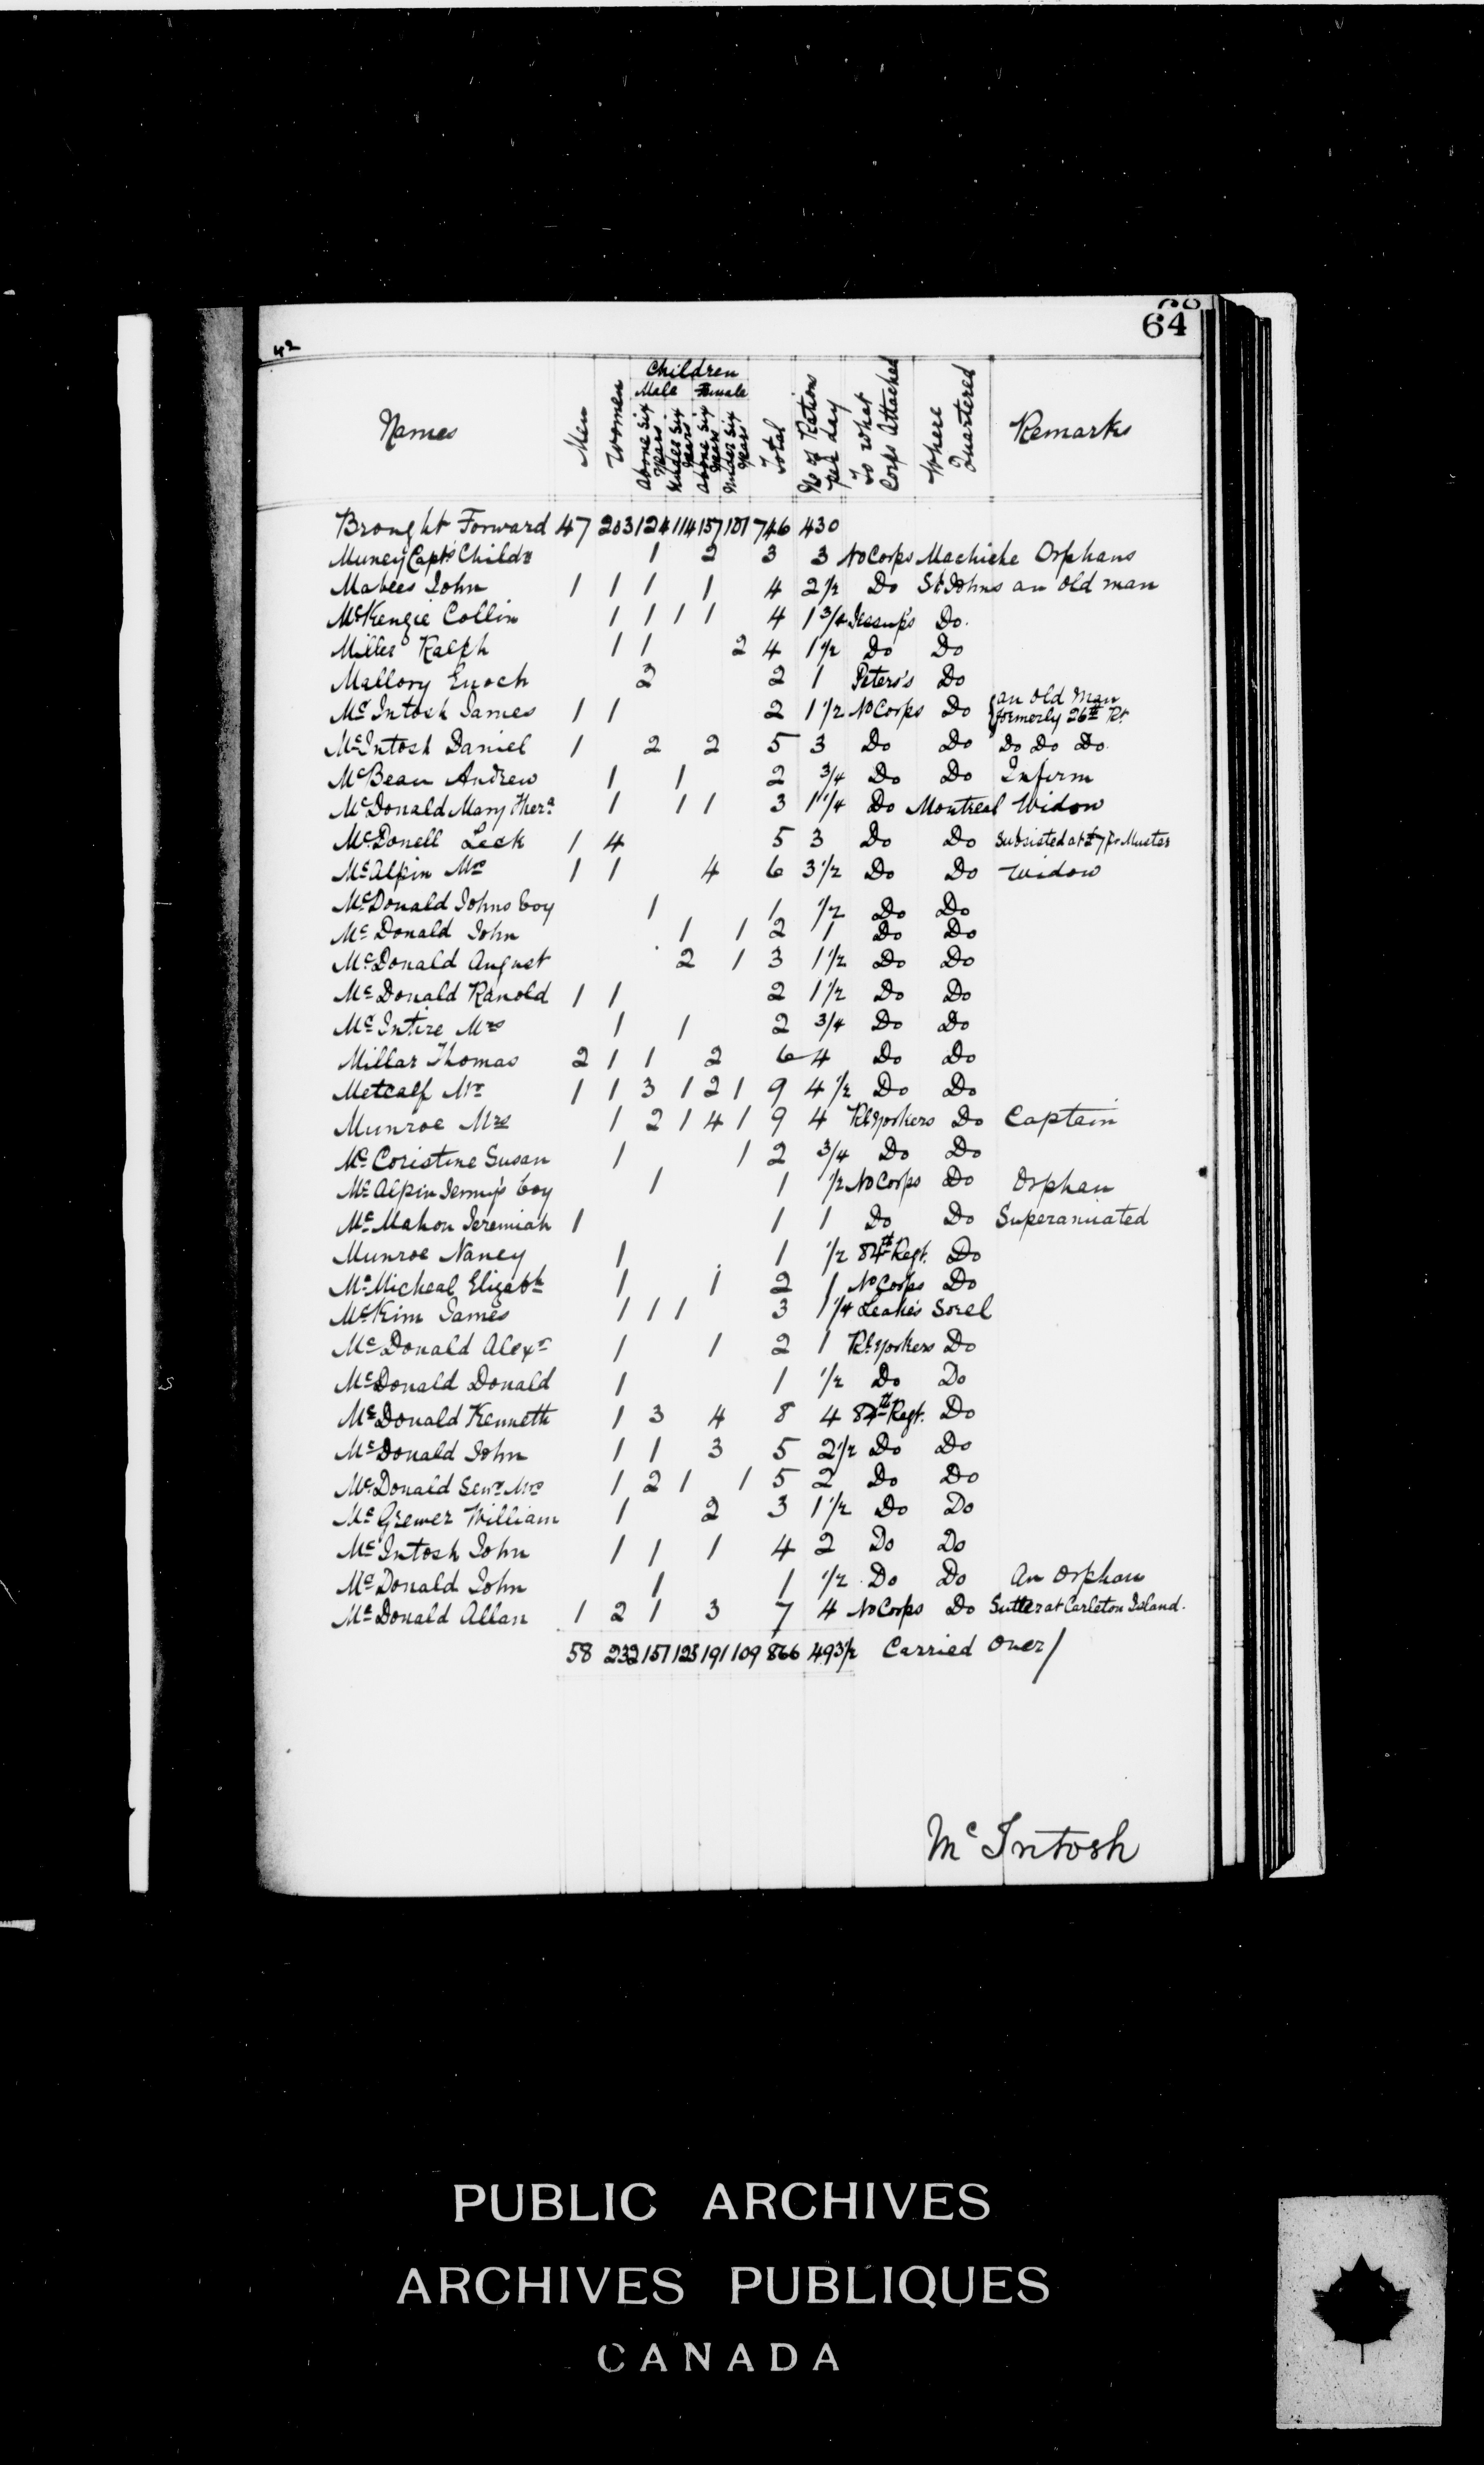 64
42
Names Men Women Children Male Above Six Years Under Six Years Female Above Six Years Under Six Years Total No of Rations per day To what Corps Attached Where Quartered Remarks
Brought Forward 47 203 124 114 157 101 746 430
Muney Capts Childn 1 2 3 3 No Corps Machiche Orphans
Mabees John 1 1 1 1 4 2 1/2 Do St Johns an old man
McKenzie Collin 1 1 1 1 4 1 3/4 Jessup's Do.
Miller Ralph 1 1 2 4 1 1/2 Do Do
Mallory Enoch 2 2 1 Peters's Do
McIntosh James 1 1 2 1 1/2 No Corps Do {an old Man formerly 26th Rt.
McIntosh Daniel 1 2 2 5 3 Do Do Do Do Do.
McBean Andrew 1 1 2 3/4 Do Do Infirm
McDonald Mary Thera 1 1 1 3 1 1/4 Do Montreal Widow
McDonell Leek 1 4 5 3 Do Do Subsisted at £7 pr Muster
McAlpin Mr 1 1 4 6 3 1/2 Do Do Widow
McDonald Johns boy 1 1 1/2 Do Do
McDonald John 1 1 2 1 Do Do
McDonald August 2 1 3 1 1/2 Do Do
McDonald Ranold 1 1 2 1 1/2 Do Do
McIntire Mrs 1 1 2 3/4 Do Do
Millar Thomas 2 1 1 2 6 4 Do Do
Metcalf Mr 1 1 3 1 2 1 9 4 1/2 Do Do
Munroe Mrs 1 2 1 4 1 9 4 Rl Yorkers Do Captain
McCoristine Susan 1 1 2 3/4 Do Do
McAlpin Jenny's boy 1 1 1/2 No Corps Do Orphan
McMahon Jeremiah 1 1 1 Do Do Superanuated
Munroe Nancy 1 1 1/2 84th Regt. Do
McMicheal Elizabth 1 1 2 1 No Corps Do
McKim James 1 1 1 3 1 1/4 Leake's Sorel
McDonald Alexr 1 1 2 1 Rl Yorkers Do
McDonald Donald 1 1 1/2 Do Do
McDonald Kenneth 1 3 4 8 4 84th Regt. Do
McDonald John 1 1 3 5 2 1/2 Do Do
McDonald Senr Mrs 1 2 1 1 5 2 Do Do
McGrewer William 1 2 3 1 1/2 Do Do
McIntosh John 1 1 1 4 2 Do Do
McDonald John 1 1 1/2 Do Do An Orphan
McDonald Allan 1 2 1 3 7 4 No Corps Do Sutler at Carleton Island.
58 232 151 125 191 109 866 493 1/2 Carried Over/
McIntosh
PUBLIC ARCHIVES
ARCHIVES PUBLIQUES
CANADA